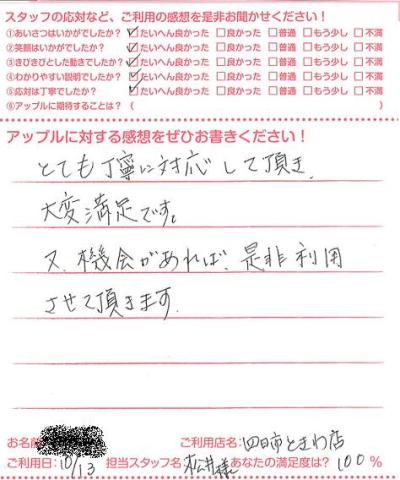 スタッフの応対など、ご利用の感想を是非お聞かせください！
①あいさつはいかがでしたか？ ☑たいへん良かった □良かった □普通 □もう少し □不満
②笑顔はいかがでしたか？ ☑たいへん良かった □良かった □普通 □もう少し □不満
③きびきびとした動きでしたか？ ☑たいへん良かった □良かった □普通 □もう少し □不満
④わかりやすい説明でしたか？ ☑たいへん良かった □良かった □普通 □もう少し □不満
⑤応対は丁寧でしたか？ ☑たいへん良かった □良かった □普通 □もう少し □不満
⑥アップルに期待することは？ (
アップルに対する感想をぜひお書きください！
とても丁寧に対応して頂き、
大変満足です。
又、機会があれば、是非利用
させて頂きます。
お名前 ご利用店名：四日市ときわ店
ご利用日：10/13 担当スタッフ名 松井様 あなたの満足度は？ 100％